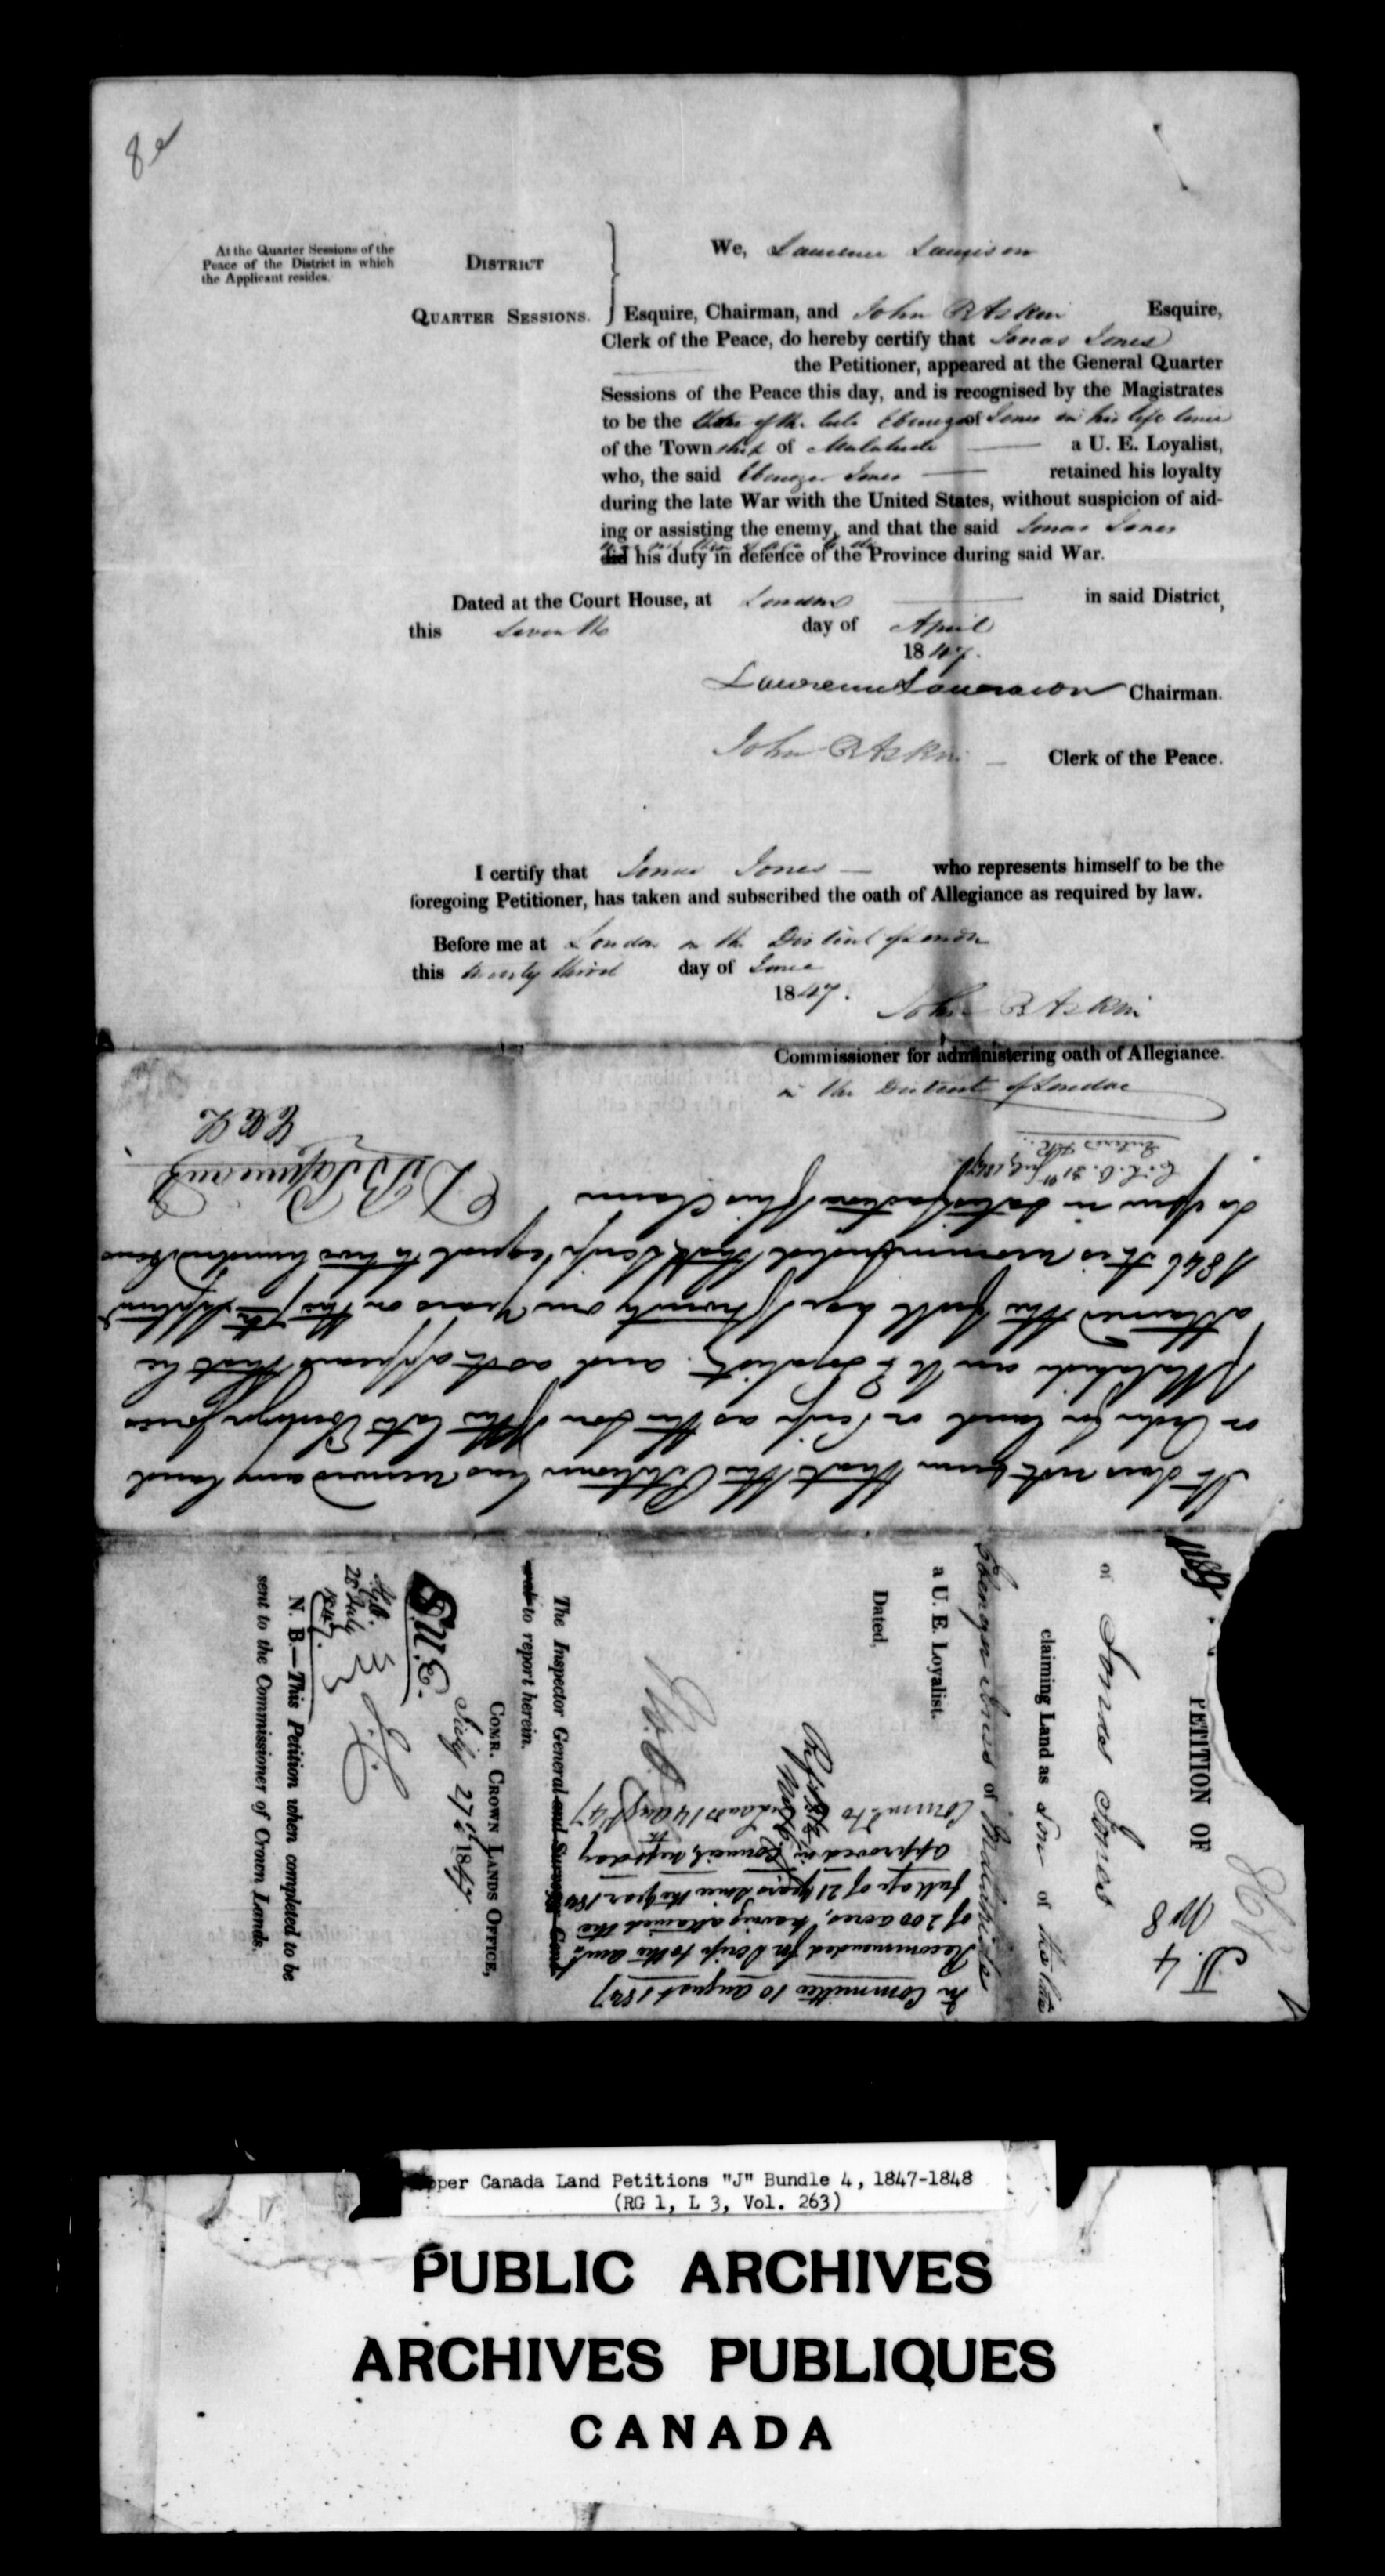 8e
At the Quarter Sessions of the
Peace of the District in which
the Applicant resides.
DISTRICT
QUARTER SESSIONS.
We, Lawrence Lawrason
Esquire, Chairman, and John B Askin Esquire,
Clerk of the Peace, do hereby certify that Jonas Jones
the Petitioner, appeared at the General Quarter
Sessions of the Peace this day, and is recognised by the Magistrates
to be the of the late Ebenezer of Jones in his life time
of the Township of Malahide a U. E. Loyalist,
who, the said Ebenezer Jones retained his loyalty
during the late War with the United States, without suspicion of aid-
ing or assisting the enemy, and that the said Jonas Jones
did his duty in defence of the Province during said War.
Dated at the Court House, at London in said District,
this Seventh day of April
1847.
Lawrence Lawrason Chairman.
John B Askin Clerk of the Peace.
I certify that Jonas Jones who represents himself to be the
foregoing Petitioner, has taken and subscribed the oath of Allegiance as required by law.
Before me at London in the District of London
this twenty third day of June
1847.
John B Askin
Commissioner for administering oath of Allegiance.
in the District of London
It does not seem that the Petitioner has received any land
or Order for land or Scrip as the Son of the late Ebenezer Jones
of Malahide an U E Loyalist, and as it appears that he
attained the full age of twenty one years on the 7th
1846 it is recommended that Scrip equal to two hundred acres
do issue in satisfaction of his Claim
D B Papineau
C C L
C. L. O. 31st July 1847.
PETITION OF
No 8
J. 4
of Jonas Jones
claiming Land as Son of the late
Ebenezer Jones of Malahide
a U. E. Loyalist.
Dated,
In Committee 10 august 1847
Recommended for Scrip to the amt
of 200 acres, having attained the
full age of 21 years since the year
approved in Council, day
The Inspector General and Surveyor Genl.
to report herein.
COMR. CROWN LANDS OFFICE,
July 27th 1847.
S.U.E.
28 July
1847.
N. B.—This Petition when completed to be
sent to the Commissioner of Crown Lands.
pper Canada Land Petitions "J" Bundle 4, 1847-1848
(RG 1, L 3, Vol. 263)
PUBLIC ARCHIVES
ARCHIVES PUBLIQUES
CANADA